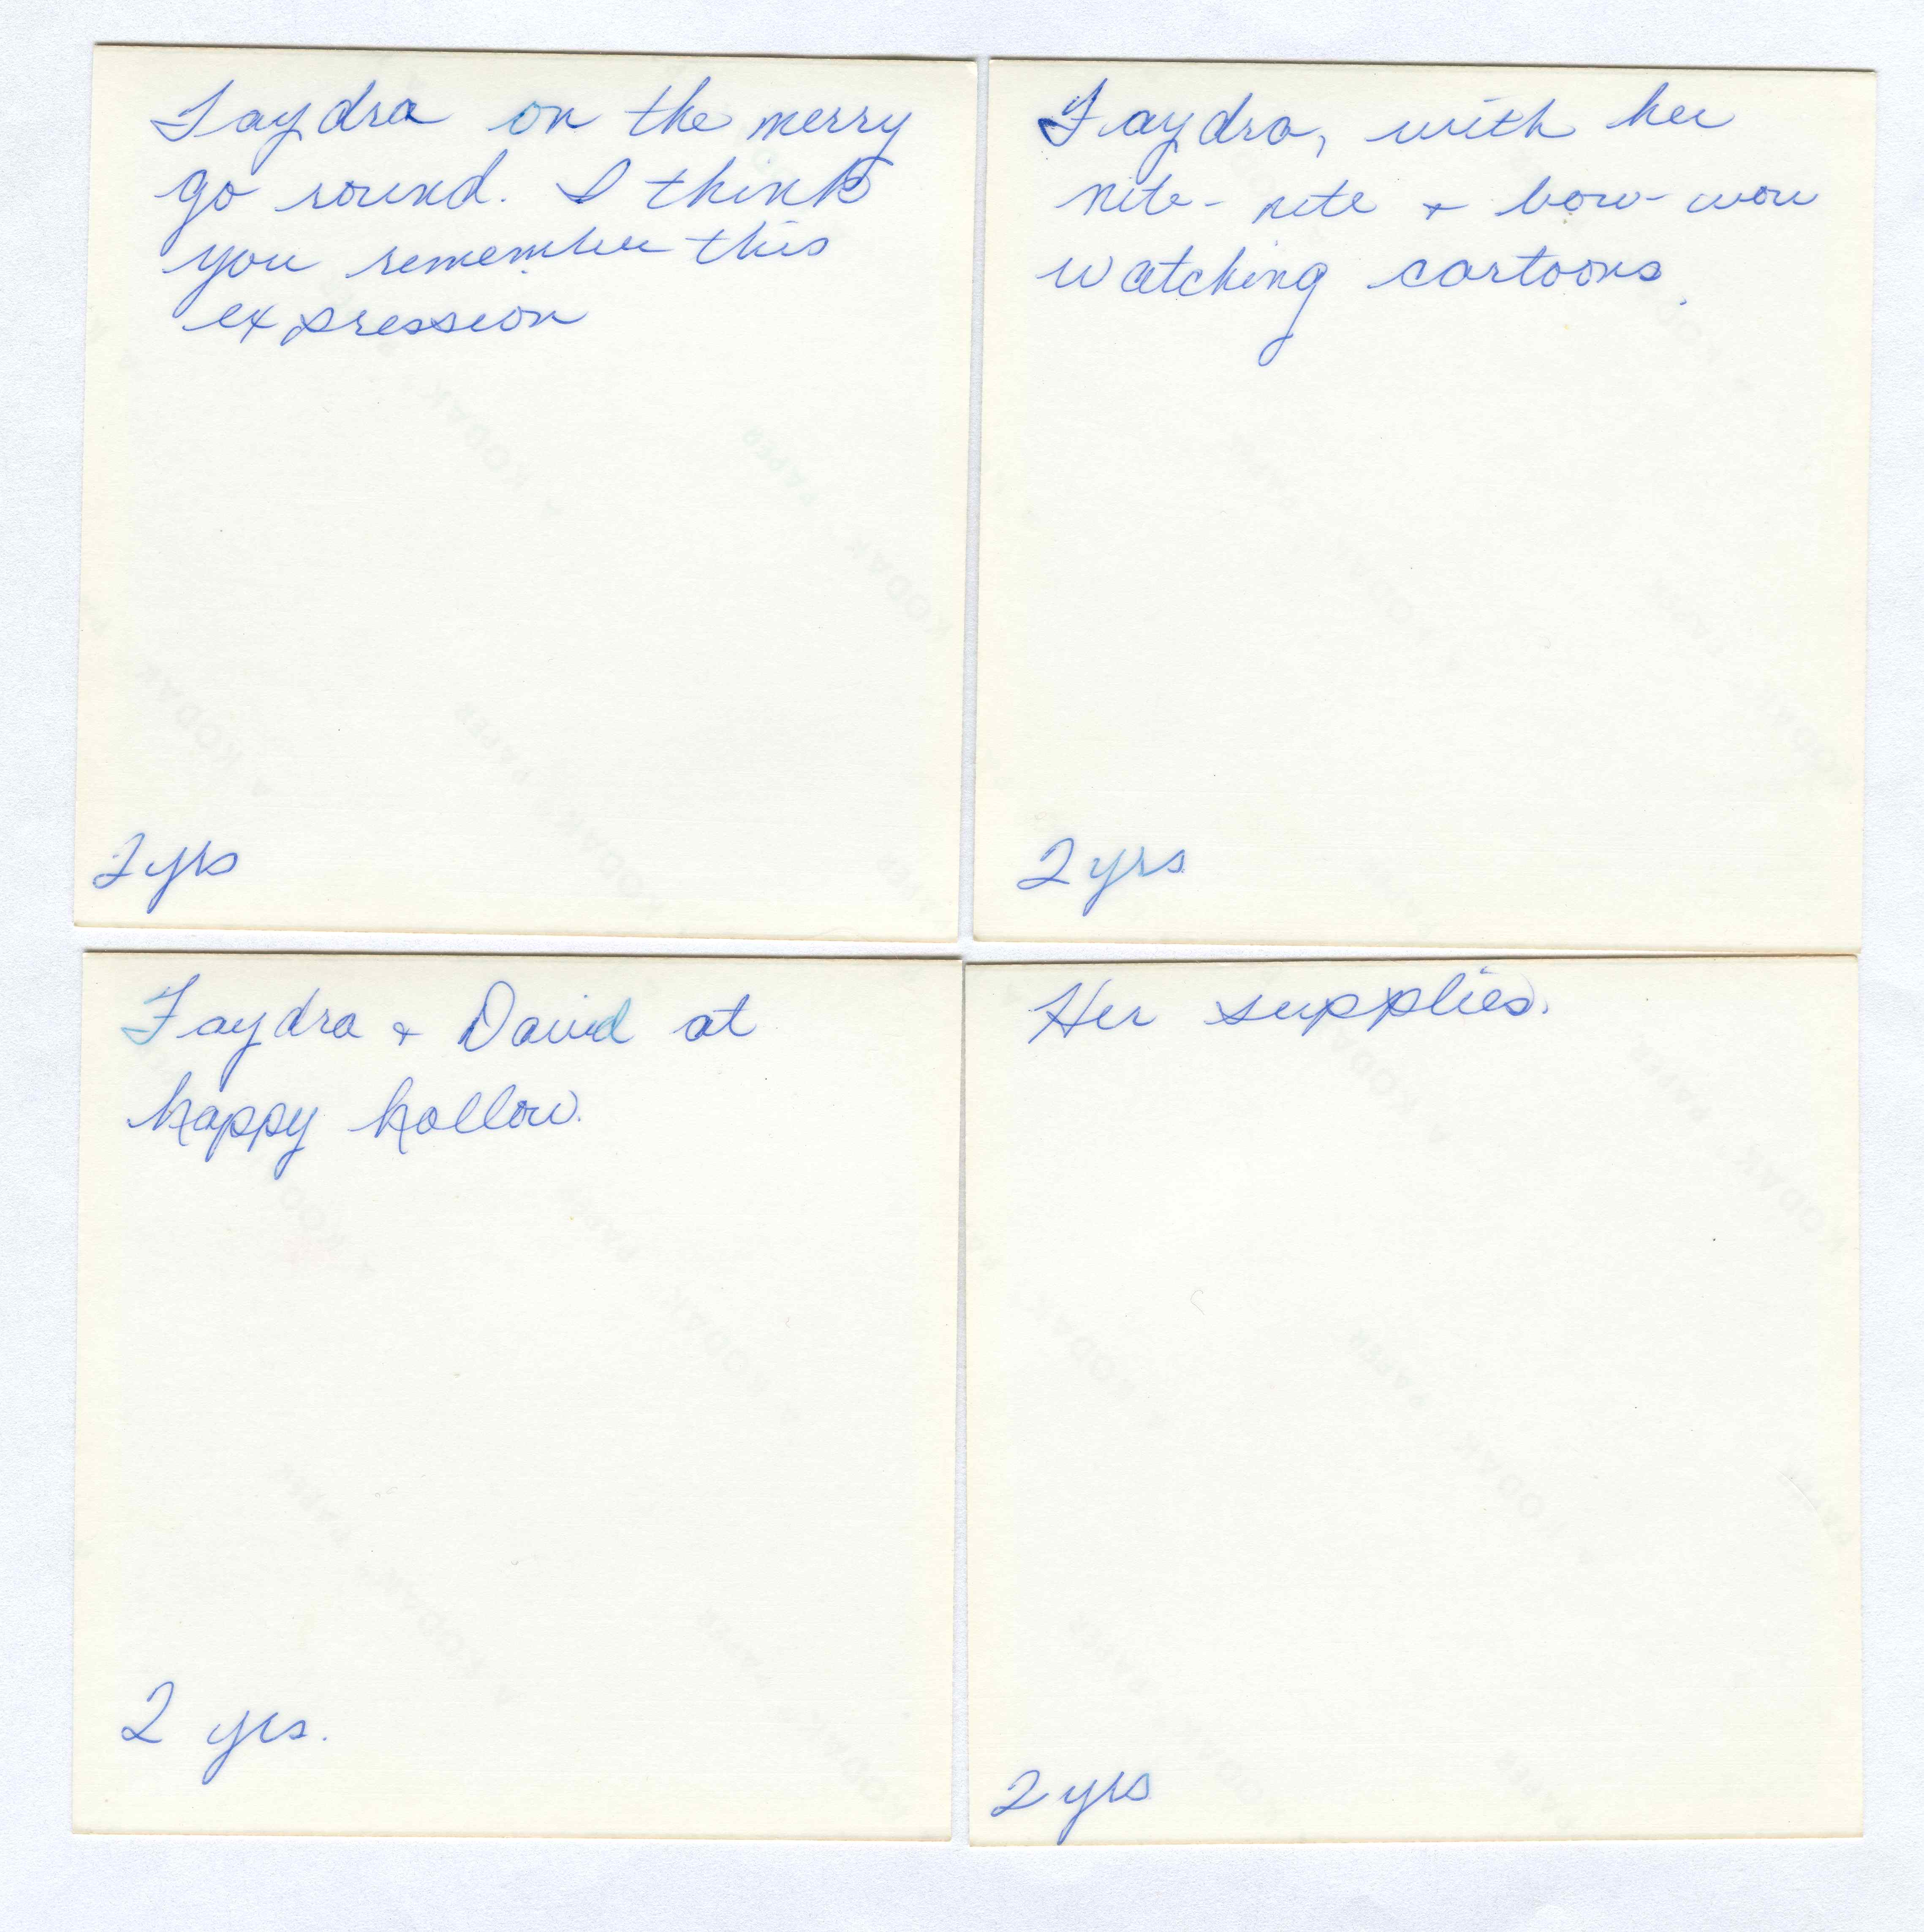 Faydra on the merry
go round. I think
you remember this
expression
2 yrs
Faydra, with her
nite-nite + bow-wow
watching cartoons.
2 yrs
Faydra + David at
happy hollow.
2 yrs.
Her supplies.
2 yrs